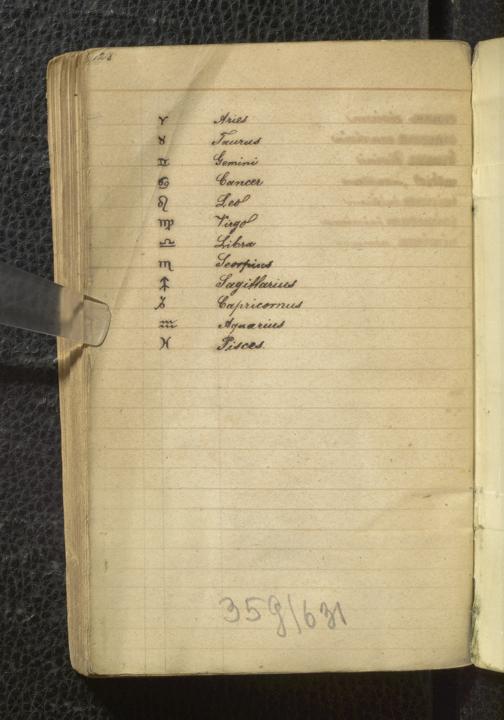 ♈ Aries
♉ Taurus
♊ Gemini
♋ Cancer
♌ Leo
♍ Virgo
♎ Libra
♏ Scorpius
♐ Sagittarius
♑ Capricornus
♒ Aquarius
♓ Pisces.
359/631